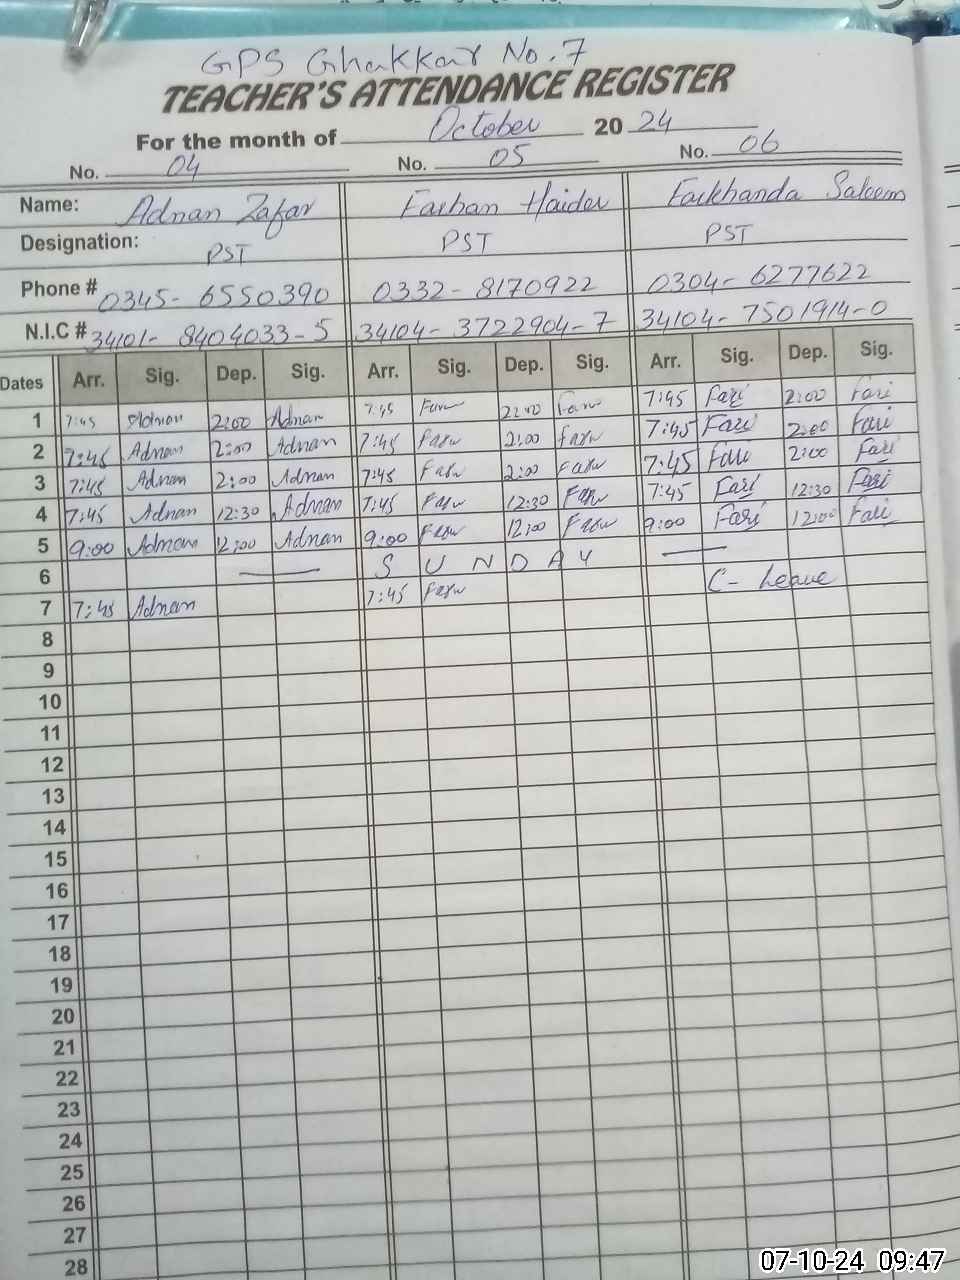 GPS Ghakkar No.7
TEACHER'S ATTENDANCE REGISTER
For the month of October 20 24
No. 04 No. 05 No. 06
Name: Adnan Zafar Farhan Haider Farkhanda Saleem
Designation: PST PST PST
Phone # 0345-6550390 0332-8170922 0304-6277622
N.I.C # 34101-8404033-5 34104-3722904-7 34104-7501914-0
Dates Arr. Sig. Dep. Sig. Arr. Sig. Dep. Sig. Arr. Sig. Dep. Sig.
1 7:45 Adnan 2:00 Adnan 7:45 2:00 7:45 Fari 2:00 Fari
2 7:45 Adnan 2:00 Adnan 7:45 2:00 7:45 Fari 2:00 Fari
3 7:45 Adnan 2:00 Adnan 7:45 2:00 7:45 Fari 2:00 Fari
4 7:45 Adnan 12:30 Adnan 7:45 12:30 7:45 Fari 12:30 Fari
5 9:00 Adnan 12:00 Adnan 9:00 12:00 9:00 Fari 12:00 Fari
6 — S U N D A Y —
7 7:45 Adnan 7:45 C- Leave
8
9
10
11
12
13
14
15
16
17
18
19
20
21
22
23
24
25
26
27
28
07-10-24 09:47